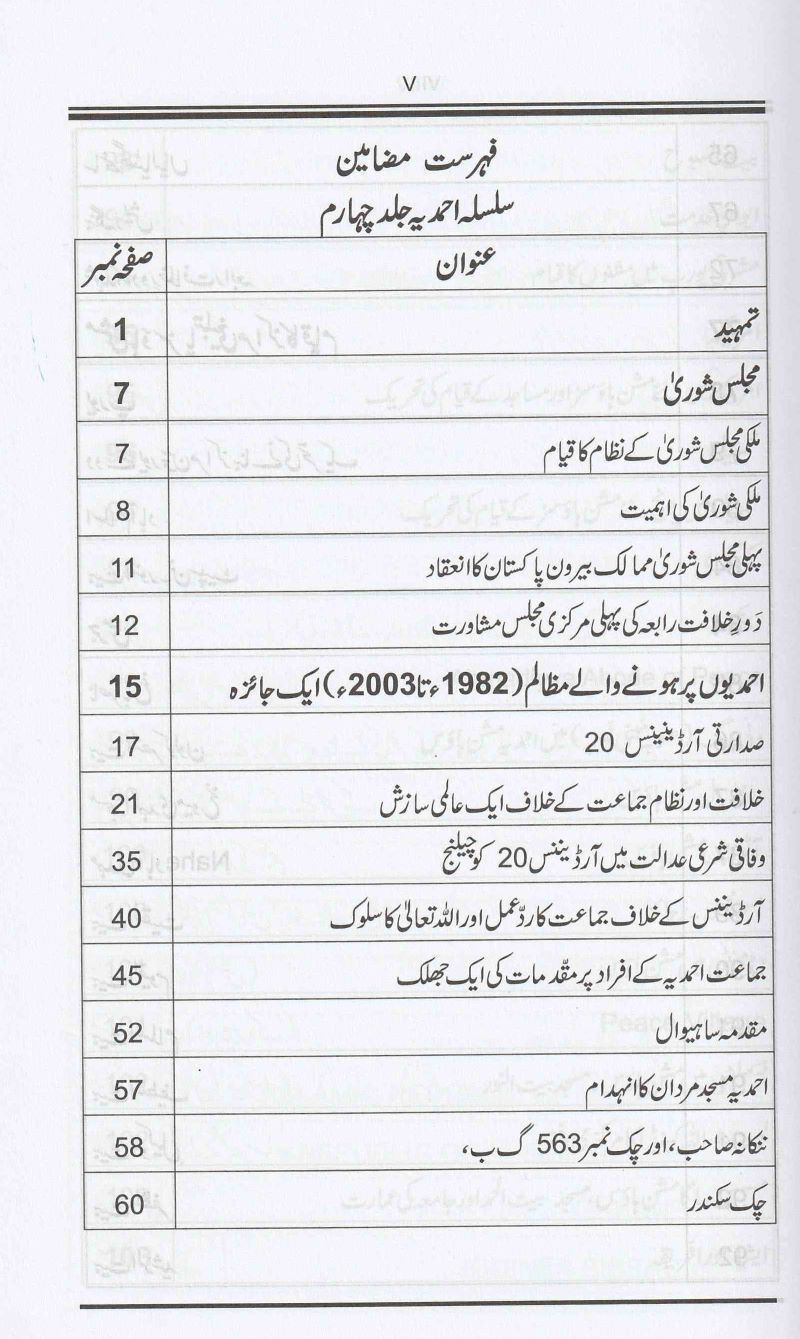 V
فہرست مضامین
سلسلہ احمدیہ جلد چہارم
عنوان صفحہ نمبر
تمہید 1
مجلس شوریٰ 7
ملکی مجلس شوریٰ کے نظام کا قیام 7
ملکی شوریٰ کی اہمیت 8
پہلی مجلس شوریٰ ممالک بیرون پاکستان کا انعقاد 11
دَورِ خلافت رابعہ کی پہلی مرکزی مجلس مشاورت 12
احمدیوں پر ہونے والے مظالم (1982ء تا 2003ء) ایک جائزہ 15
صدارتی آرڈینینس 20 17
خلافت اور نظام جماعت کے خلاف ایک عالمی سازش 21
وفاقی شرعی عدالت میں آرڈیننس 20 کو چیلنج 35
آرڈیننس کے خلاف جماعت کا ردّعمل اور اللہ تعالیٰ کا سلوک 40
جماعت احمدیہ کے افراد پر مقّدمات کی ایک جھلک 45
مقدمہ ساہیوال 52
احمدیہ مسجد مردان کا انہدام 57
ننکانہ صاحب، اور چک نمبر 563 گ ب، 58
چک سکندر 60